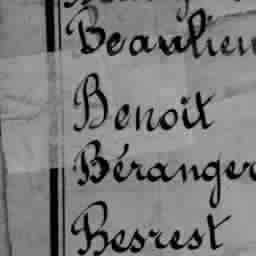 Beaulieu
Benoit
Béranger
Besrest